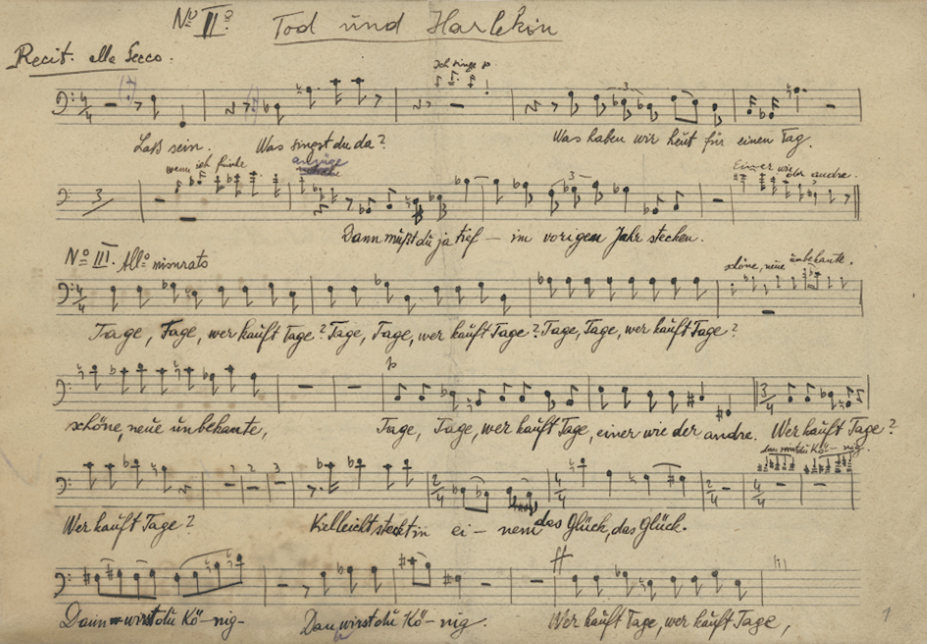 No II. Tod und Harlekin
Recit. alla Secco.
ich singe so
Laß sein. Was singst du da? Was haben wir heut für einen Tag.
wenn ich finde anzige Einer wie der andre.
3
Dann müßt du ja tief – im vorigen Jahr stecken.
No III. Allo misurato schöne, neue unbekante.
Tage, Tage, wer kauft Tage? Tage, Tage, wer kauft Tage? Tage, Tage, wer kauft Tage?
p
schöne, neue unbekante, Tage, Tage, wer kauft Tage, einer wie der andre. Wer kauft Tage?
1 2 3 Dan wirst du Kö – nig.
Wer kauft Tage? Vielleicht steckt in ei – nem das Glück, das Glück.
ff
Dann wirst du Kö – nig – Dan wirst du Kö – nig. Wer kauft Tage, wer kauft Tage,
1